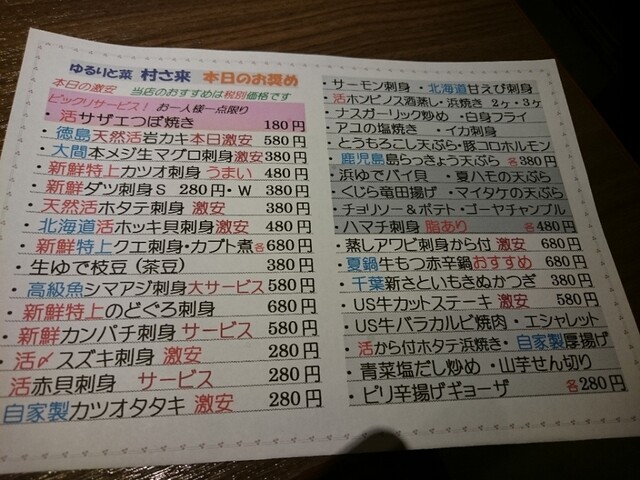 ゆるりと菜 村さ来 本日のお奨め
本日の激安 当店のおすすめは税別価格です
ビックリサービス! お一人様一点限り
・活サザエつぼ焼き 180円
・徳島天然活岩カキ本日激安 580円
・大間本メジ生マグロ刺身激安380円
・新鮮特上カツオ刺身 うまい 480円
・新鮮ダツ刺身S 280円・W 380円
・天然活ホタテ刺身 激安 380円
・北海道活ホッキ貝刺身激安 480円
・新鮮特上クエ刺身・カブト煮各680円
・生ゆで枝豆(茶豆) 380円
・高級魚シマアジ刺身大サービス580円
・新鮮特上のどぐろ刺身 680円
・新鮮カンパチ刺身 サービス 580円
・活〆スズキ刺身 激安 280円
・活赤貝刺身 サービス 280円
自家製カツオタタキ 激安 280円
・サーモン刺身 ・北海道甘えび刺身
活ホンビノス酒蒸し・浜焼き 2ヶ・3ヶ
・ナスガーリック炒め ・白身フライ
・アユの塩焼き ・イカ刺身
・とうもろこし天ぷら・豚コロホルモン
・鹿児島島らっきょう天ぷら 各380円
・浜ゆでバイ貝 ・夏ハモの天ぷら
・くじら竜田揚げ ・マイタケの天ぷら
・チョリソー&ポテト・ゴーヤチャンプル
・ハマチ刺身 脂あり 各480円
・蒸しアワビ刺身から付 激安 680円
・夏鍋牛もつ赤辛鍋おすすめ 680円
・千葉新さといもきぬかつぎ 380円
・US牛カットステーキ 激安 580円
・US牛バラカルビ焼肉 ・エシャレット
・活から付ホタテ浜焼き・自家製厚揚げ
・青菜塩だし炒め ・山芋せん切り
・ピリ辛揚げギョーザ 各280円